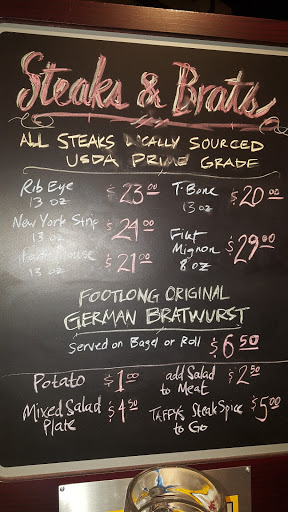 Steaks & Brats
ALL STEAKS LOCALLY SOURCED
USDA PRIME GRADE
Rib Eye $23.00
13 oz
T-Bone $20.00
13 oz
New York Strip $24.00
13 oz
Filet Mignon $29.00
8 oz
$21.00
13 oz
FOOTLONG ORIGINAL
GERMAN BRATWURST
Served on Bagel or Roll $6.50
Potato $1.00
add Salad to Meat $2.50
Mixed Salad Plate $4.50
TAFFY'S Steak Spice to Go $5.00